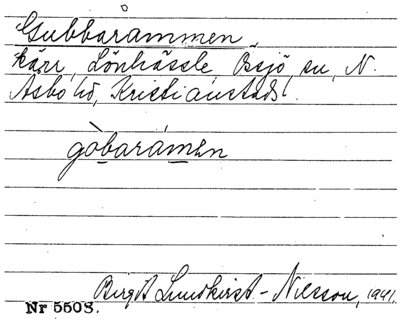 Gubbarammen
kärr, Lönhässle, Össjö sn, N.
Åsbo hd, Kristianstads l.
gòbarámen
Birgit Lundkvist - Nilsson, 1941.
Nr 5503.